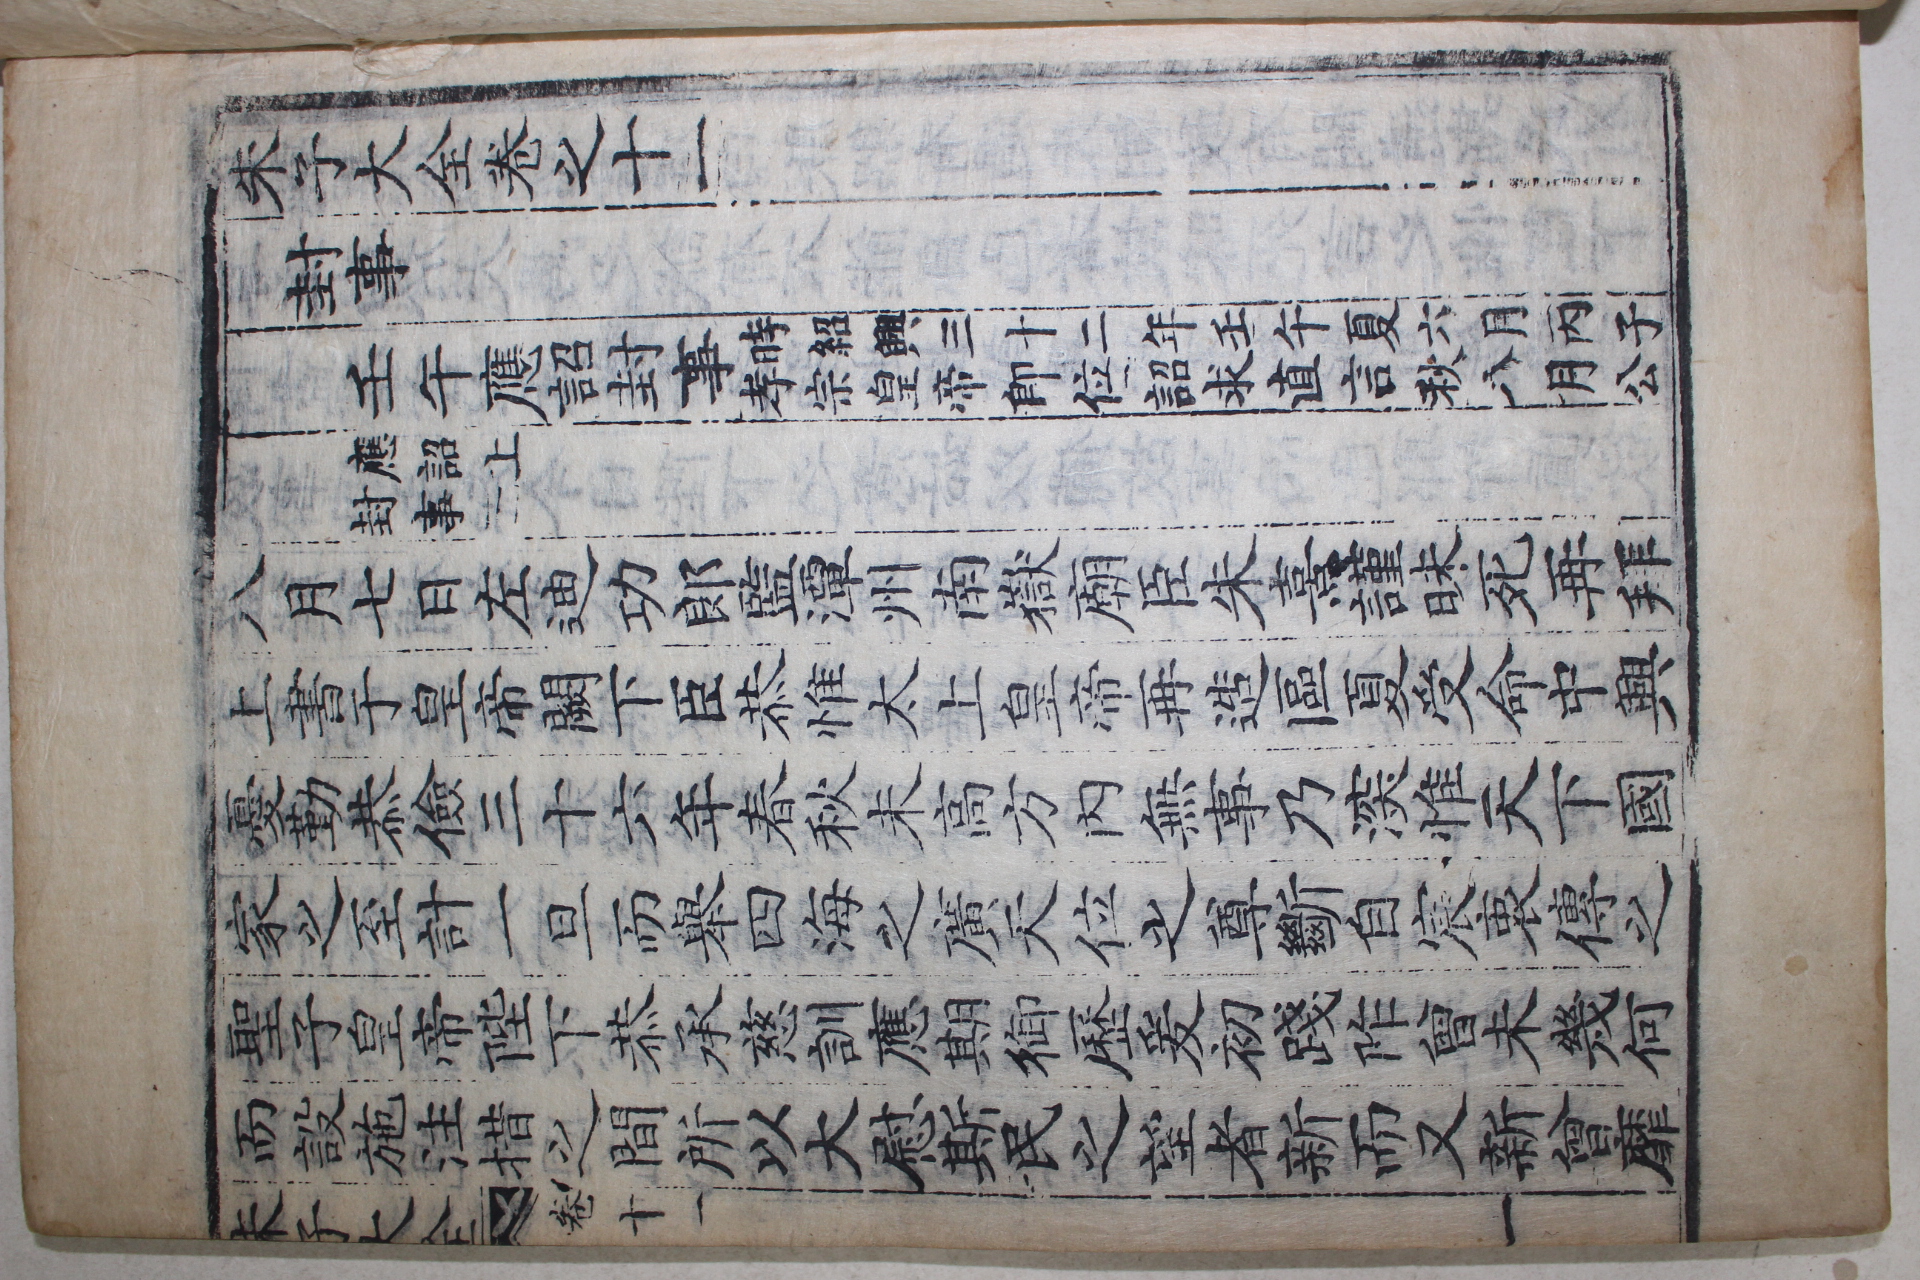 朱子大全卷之十一
封事
壬午應詔封事
時紹興三十二年壬午夏六月丙子
孝宗皇帝卽位詔求直言秋八月公
應詔上
封事
八月七日左迪功郎監潭州南嶽廟臣朱熹謹昧死再拜
上書于皇帝闕下臣恭惟太上皇帝再造區夏受命中興
憂勤恭儉三十六年春秋未高方內無事乃深惟天下國
家之至計一旦而擧四海之廣天位之尊斷自宸衷傳之
聖子皇帝陛下恭承慈訓應期御歷爰初踐阼曾未幾何
而設施注措之間所以大慰斯民之望者新而又新曾靡
朱子大全 卷十一 一